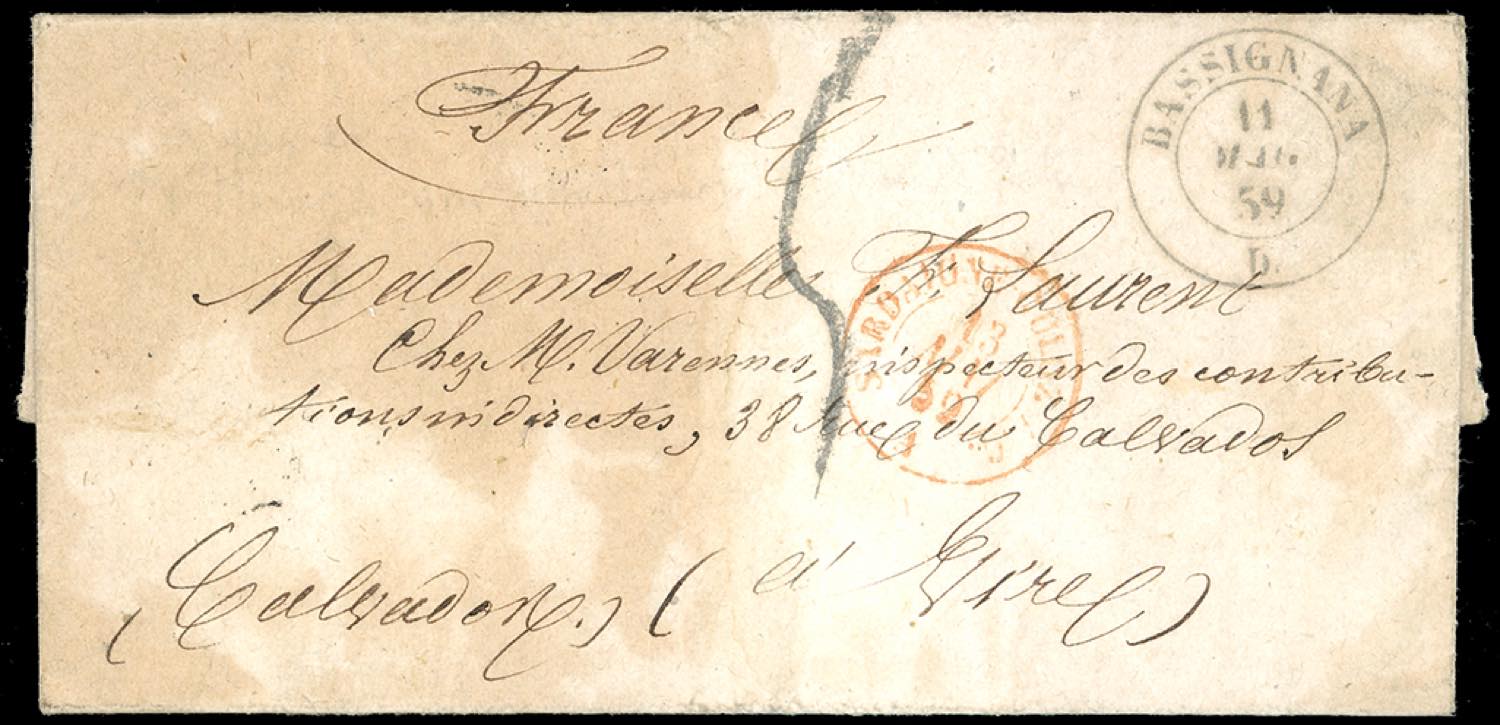 France
BASSIGNANA
11
MAG
59
D.
Mademoiselle Fr. Laurent
Chez M. Varennes, inspecteur des contribu-
tions indirectes, 38 Rue du Calvados
SARDAIGNE
59
(Calvados.) (à Vire)